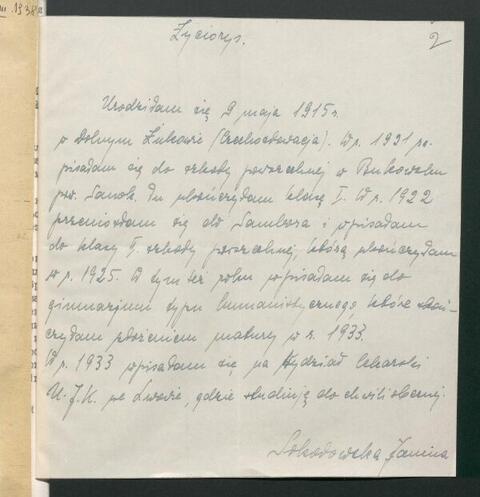 1938
2
Życiorys.
Urodziłam się 9 maja 1915 r.
w Dolnym (Czechosłowacja). W r. 1921 w-
pisałam się do szkoły powszechnej w Bukowsku
pow. Sanok. Tu ukończyłam klasę I. W r. 1922
przeniosłam się do Sambora i wpisałam
do klasy II. szkoły powszechnej, którą ukończyłam
w r. 1925. W tym też roku wpisałam się do
gimnazjum typu humanistycznego, które ukoń-
czyłam złożeniem matury w r. 1933.
W r. 1933 wpisałam się na Wydział Lekarski
U.J.K. we Lwowie, gdzie studiuję do chwili obecnej.
Sokołowska Janina